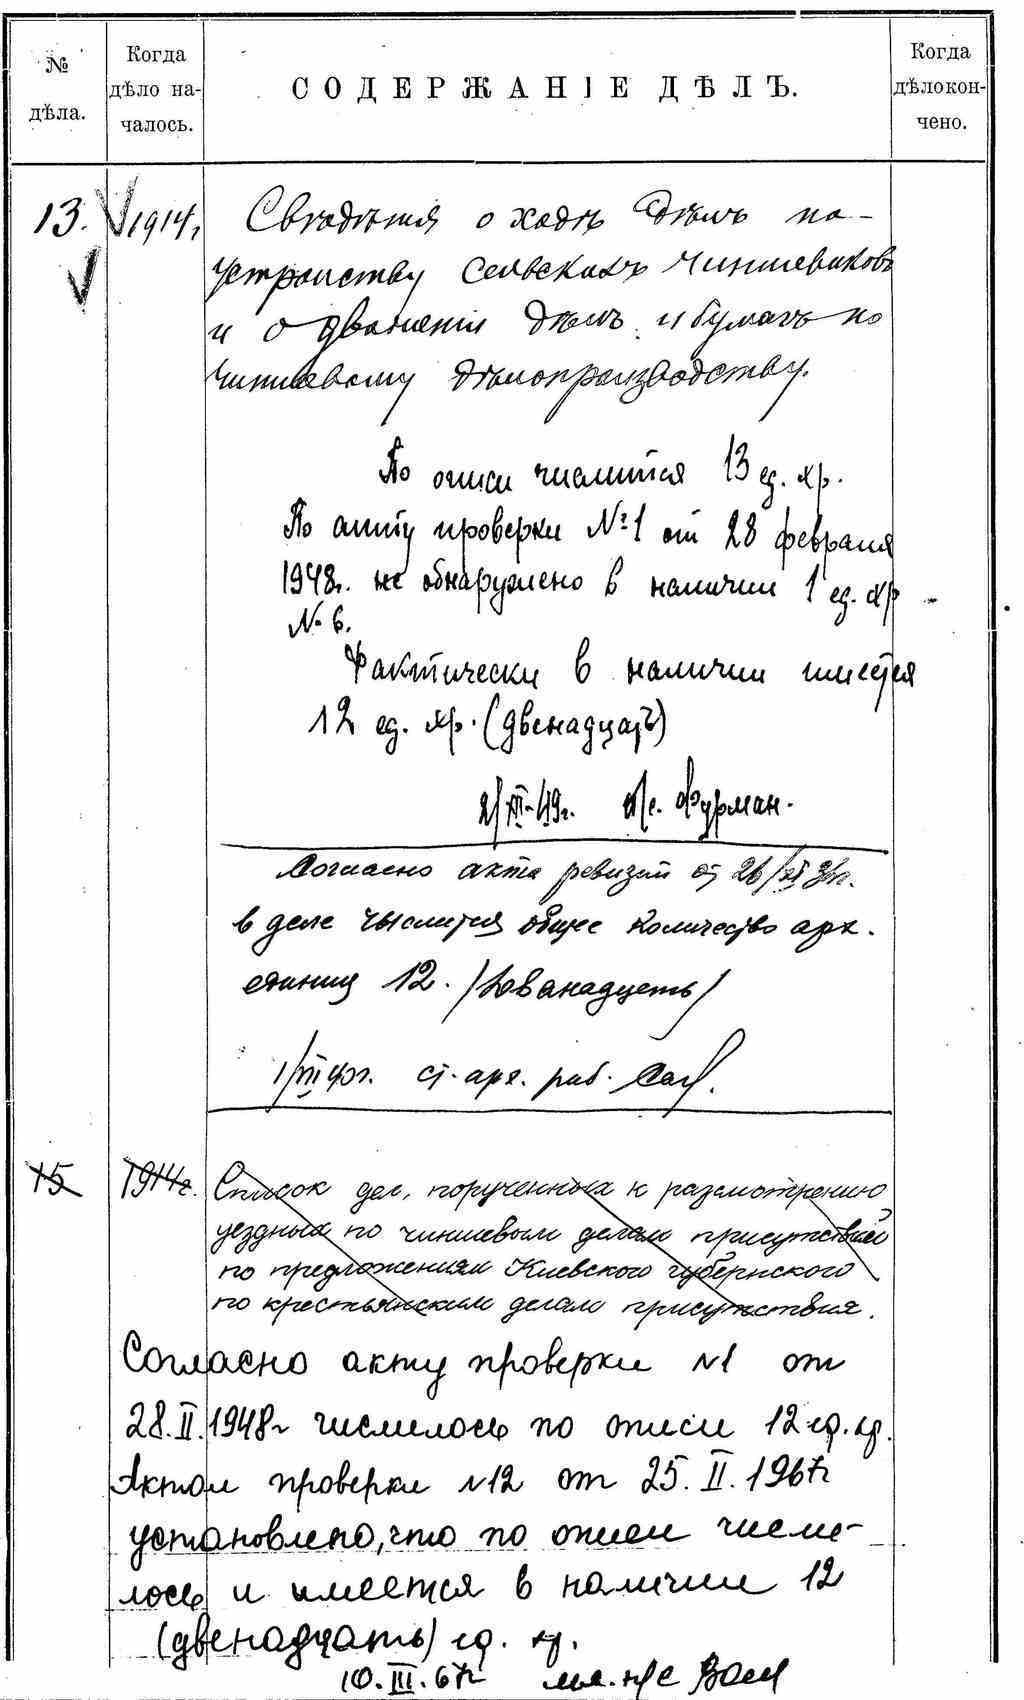 № дѣла.
Когда дѣло началось.
СОДЕРЖАНІЕ ДѢЛЪ.
Когда дѣло кончено.
13. 1914г. Свѣдѣнія о ходѣ дѣлъ по
устройству сельскихъ чиншевиковъ
и о движеніи дѣлъ и бумагъ по
чиншевому дѣлопроизводству.
По описи числится 13 ед. хр.
По акту проверки №1 от 28 февраля
1948г. не обнаружено в наличии 1 ед. хр
№ 6.
Фактически в наличии имеется
12 ед. хр. (двенадцать)
2/III-49г. Фурман.
Согласно акта ревизии от 26/
в деле числится общее количество арх.
единиц 12. /Двенадцать/
ст. арх. раб.
15 1914г. Список дел, порученных к разсмотрению
уездных по чиншевым делам присутствий
по предложениям Киевского губернского
по крестьянским делам присутствия.
Согласно акту проверки №1 от
28.II.1948г числилось по описи 12 ед. хр.
Актом проверки №12 от 25.II.1967г
установлено, что по описи числи-
лось и имеется в наличии 12
(двенадцать) ед. хр.
10.III.67г мл. н/с